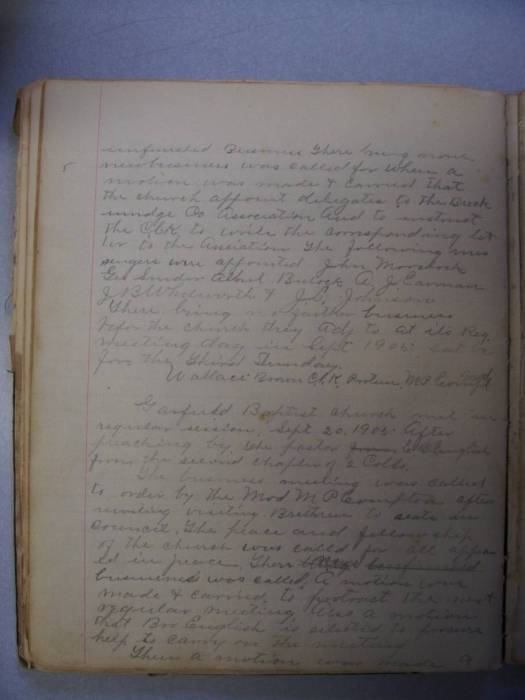 unfinished Business There being none
new business was called for when a
motion was made & carried that
the church appoint delegates to the Breck
inridge Co Association And to instruct
the Clk to write the corresponding let
ter to the Association The following mes
sengers were appointed John
Geo Snider Albert Bulock A. J. Carman
J B Whitworth & J. D. Johnson
There being no further business
before the church they Adj to at its Reg
meeting day in Sept 1905
for the Third Sunday.
Wallace Brown Clk, Protem, M P Compton
Garfield Baptist Church met in
regular session, Sept 20, 1905 After
preaching by the pastor English
from the second chapter of 2 Colls.
The business meeting was called
to order by the Mod M P Compton after
inviting visiting Brethren to seats in
council. The peace and fellowship
of the church was calld for all appea
ld in peace, Then
business was called, A motion was
made & carried to protract the next
regular meeting Also a motion
that Bro English is selected to procure
help to carry on the meeting
Then a motion was made &